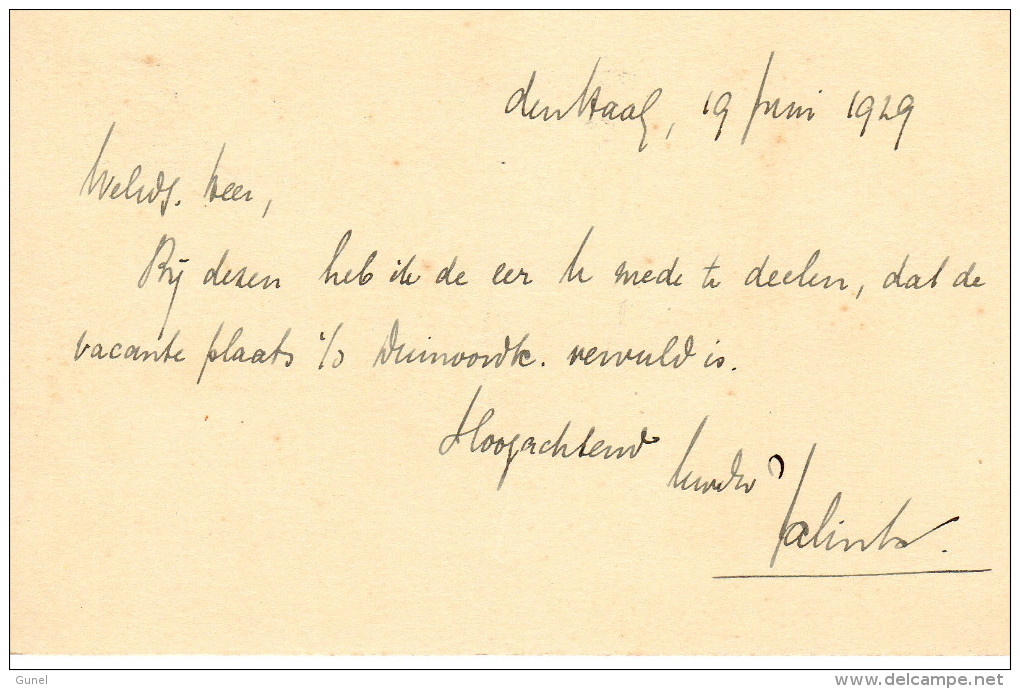 den Haag, 19 Juni 1929
WelEd. Heer,
Bij dezen heb ik de eer U mede te deelen, dat de
vacante plaats i/d Duinoordk. vervuld is.
Hoogachtend
Uwdw
Gunel
www.delcampe.net